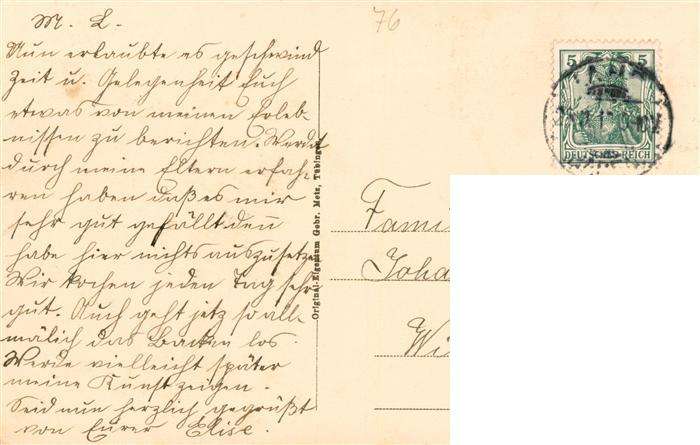 M. L.
Nun erlaubte es geschwind
Zeit u. Gelegenheit Euch
etwas von meinen Erleb-
nissen zu berichten. Werdet
durch meine Eltern erfah-
ren haben daß es mir
sehr gut gefällt denn
habe hier nichts auszusetzen
Wir kochen jeden Tag sehr
gut. Auch geht jetz so all-
mälich das Backen los.
Werde vielleicht später
meine Kunst zeigen.
Seid nun herzlich gegrüßt
von Eurer Elise.
76
Original-Eigentum Gebr. Metz, Tübingen
5 5
DEUTSCHES REICH
Fami
Joha
Wi